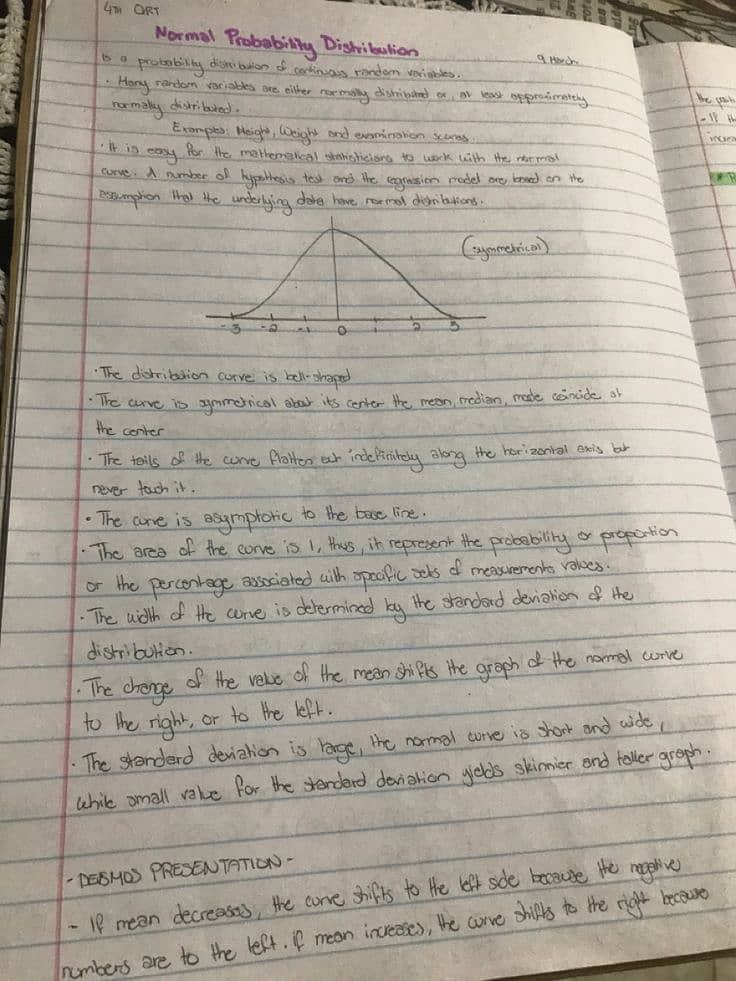 4TH QRT
Normal Probability Distribution
9 March
Is a probability distribution of continuous random variables.
· Many random variables are either normally distributed or, at least approximately
normally distributed.
Examples: Height, Weight and examination scores.
· It is easy for the mathematical statisticians to work with the normal
curve. A number of hypothesis test and the regression model are based on the
assumption that the underlying data have normal distributions.
(symmetrical)
-3 -2 -1 0 2 3
· The distribution curve is bell-shaped
· The curve is symmetrical about its center the mean, median, mode coincide at
the center
· The tails of the curve flatten out indefinitely along the horizontal axis but
never touch it.
· The curve is asymptotic to the base line.
· The area of the curve is 1, thus, it represent the probability or proportion
or the percentage associated with specific sets of measurements values.
· The width of the curve is determined by the standard deviation of the
distribution.
· The change of the value of the mean shifts the graph of the normal curve
to the right, or to the left.
· The standard deviation is large, the normal curve is short and wide,
while small value for the standard deviation yields skinnier and taller graph.
- DESMOS PRESENTATION -
- If mean decreases, the curve shifts to the left side because the negative
numbers are to the left. if mean increases, the curve shifts to the right because
the
- If